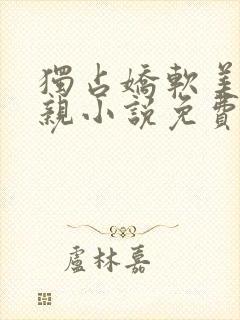 獨占嬌軟美
親小說免費
盧林嘉